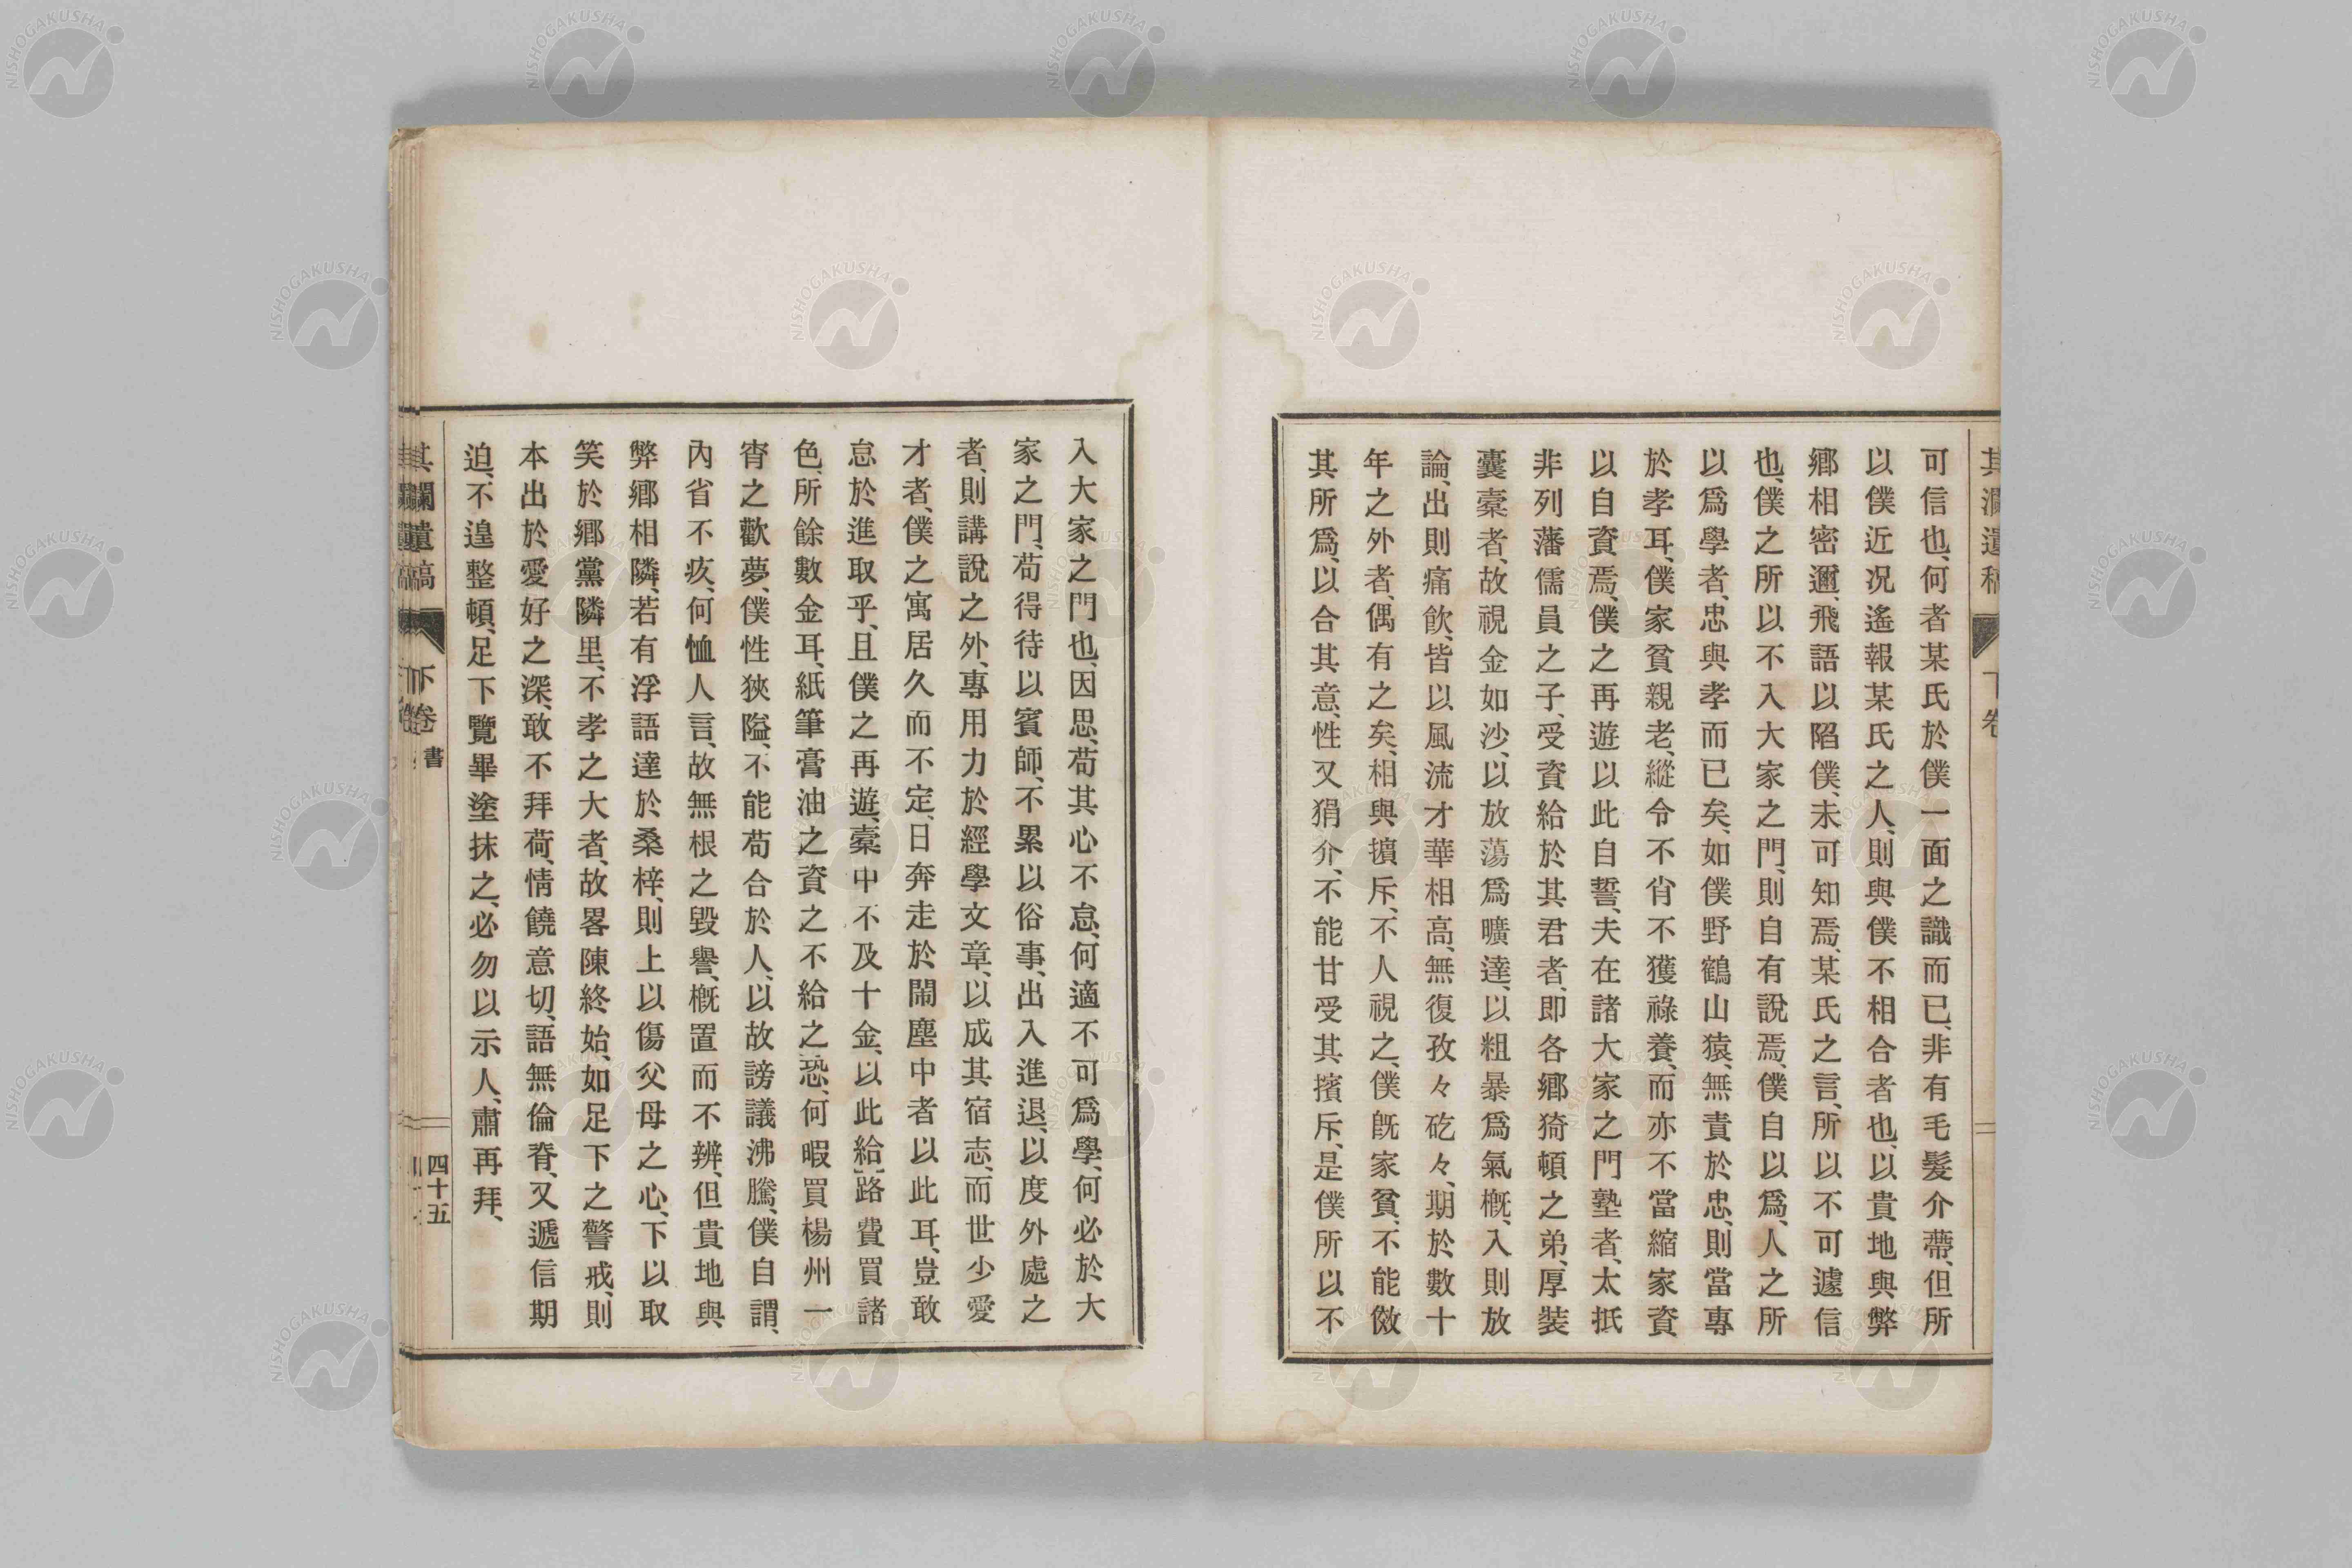 可信也、何者某氏於僕一面之識而已、非有毛髮介蔕、但所
以僕近况遙報某氏之人、則與僕不相合者也、以貴地與弊
鄕相密邇、飛語以陷僕、未可知焉、某氏之言、所以不可遽信
也、僕之所以不入大家之門、則自有說焉、僕自以爲、人之所
以爲學者、忠與孝而已矣、如僕野鶴山猿、無責於忠、則當專
於孝耳、僕家貧親老、縱令不肖不獲祿養、而亦不當縮家資、
以自資焉、僕之再遊以此自誓、夫在諸大家之門塾者、太抵
非列藩儒員之子、受資給於其君者、即各鄕猗頓之弟、厚裝
囊槖者、故視金如沙、以放蕩爲曠達、以粗暴爲氣槪、入則放
論、出則痛飮、皆以風流才華相高、無復孜々矻々、期於數十
年之外者、偶有之矣、相與擯斥、不人視之、僕旣家貧、不能傚
其所爲、以合其意、性又狷介、不能甘受其擯斥、是僕所以不
入大家之門也、因思、苟其心不怠、何適不可爲學、何必於大
家之門、苟得待以賓師、不累以俗事、出入進退、以度外處之
者、則講說之外、專用力於經學文章、以成其宿志、而世少愛
才者、僕之寓居久而不定、日奔走於鬧塵中者以此耳、豈敢
怠於進取乎、且僕之再遊、槖中不及十金、以此給路費買諸
色、所餘數金耳、紙筆膏油之資之不給之恐、何暇買楊州一
宵之歡夢、僕性狹隘、不能苟合於人、以故謗議沸騰、僕自謂、
內省不疚、何恤人言、故無根之毀譽、槪置而不辨、但貴地與
弊鄕相隣、若有浮語達於桑梓、則上以傷父母之心、下以取
笑於鄕黨隣里、不孝之大者、故畧陳終始、如足下之警戒、則
本出於愛好之深、敢不拜荷、情饒意切、語無倫脊、又遞信期
迫、不遑整頓、足下覽畢塗抹之、必勿以示人、肅再拜、
其瀾遺稿 下卷 書 四十五